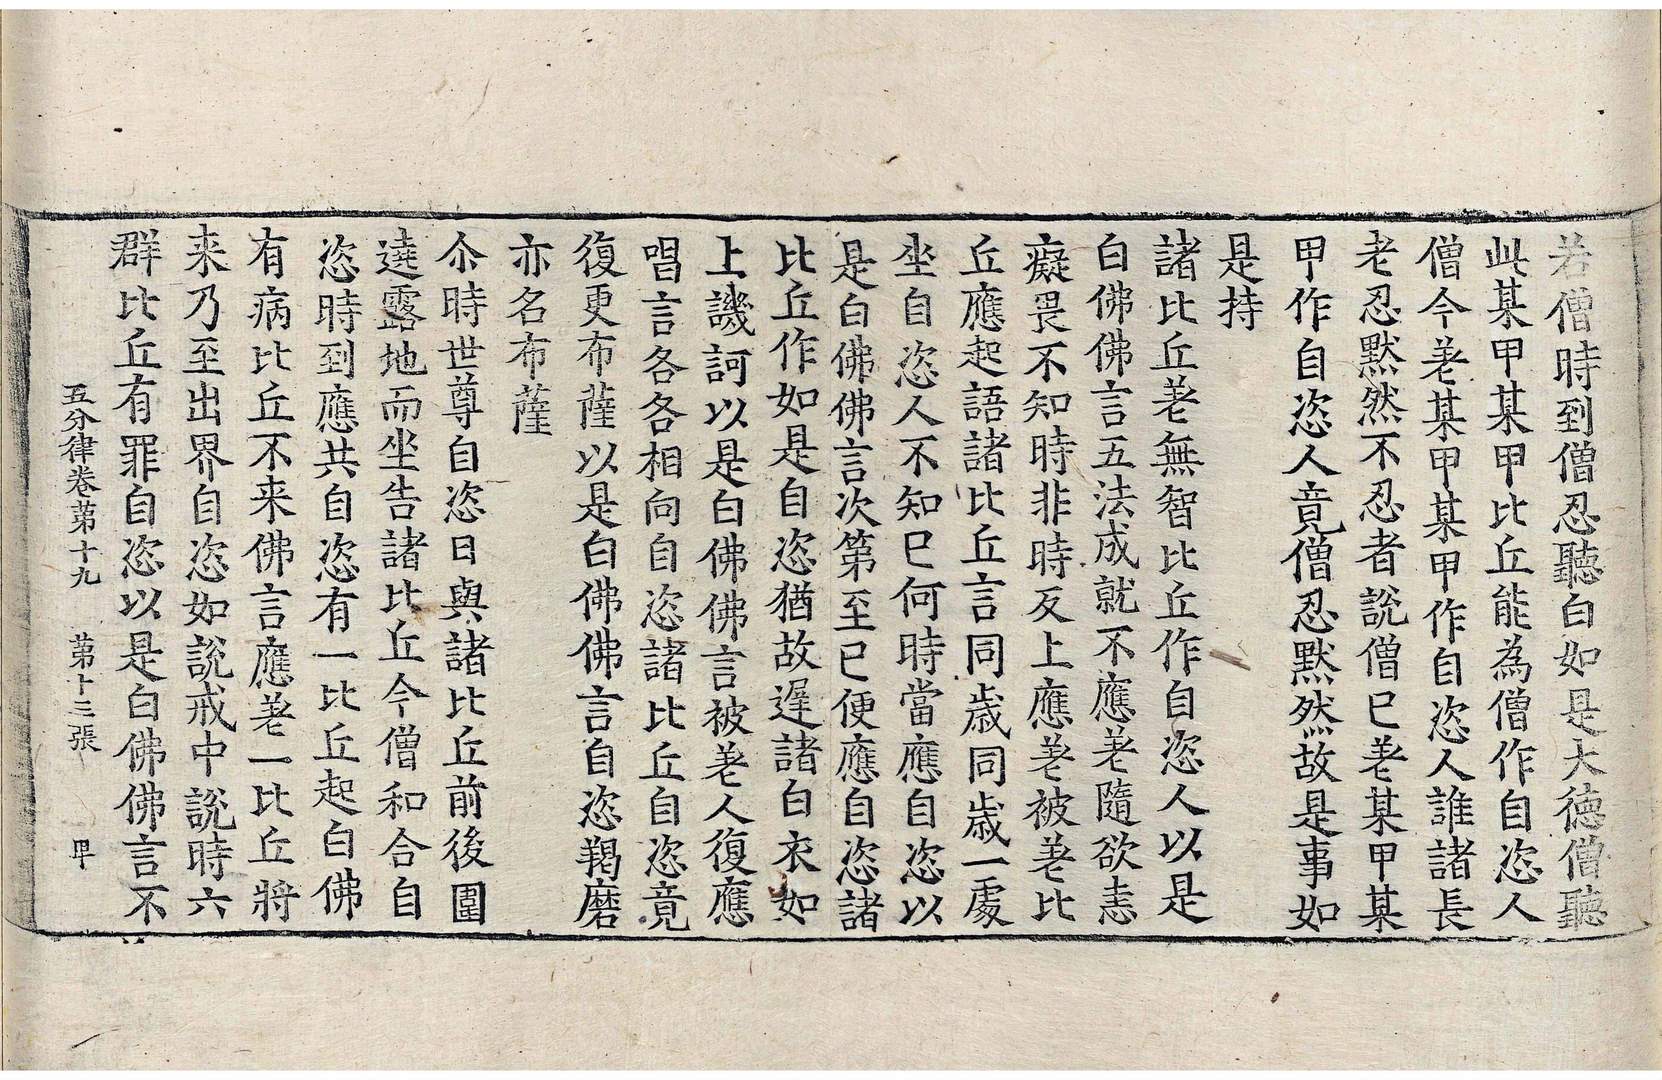 若僧時到僧忍聽白如是大德僧聽
此某甲某甲比丘能為僧作自恣人
僧今差某甲某甲作自恣人誰諸長
老忍默然不忍者說僧已差某甲某
甲作自恣人竟僧忍默然故是事如
是持
諸比丘差無智比丘作自恣人以是
白佛佛言五法成就不應差隨欲恚
癡畏不知時非時反上應差被差比
丘應起語諸比丘言同歲同歲一處
坐自恣人不知已何時當應自恣以
是白佛佛言次第至已便應自恣諸
比丘作如是自恣猶故遲諸白衣如
上譏訶以是白佛佛言被差人復應
唱言各各相向自恣諸比丘自恣竟
復更布薩以是白佛佛言自恣羯磨
亦名布薩
尒時世尊自恣日與諸比丘前後圍
遶露地而坐告諸比丘今僧和合自
恣時到應共自恣有一比丘起白佛
有病比丘不来佛言應差一比丘將
来乃至出界自恣如說戒中說時六
群比丘有罪自恣以是白佛佛言不
五分律卷第十九 第十三張 甲